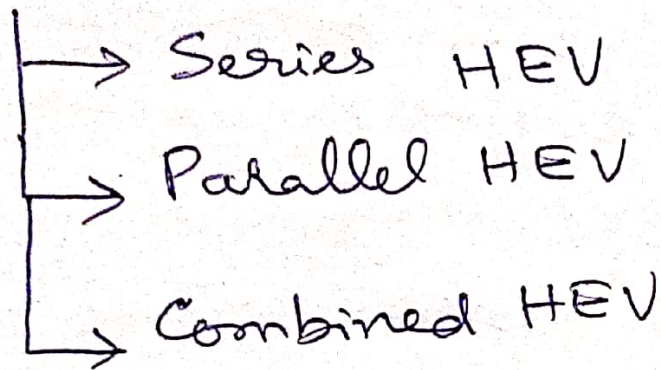 Series HEV
Parallel HEV
Combined HEV